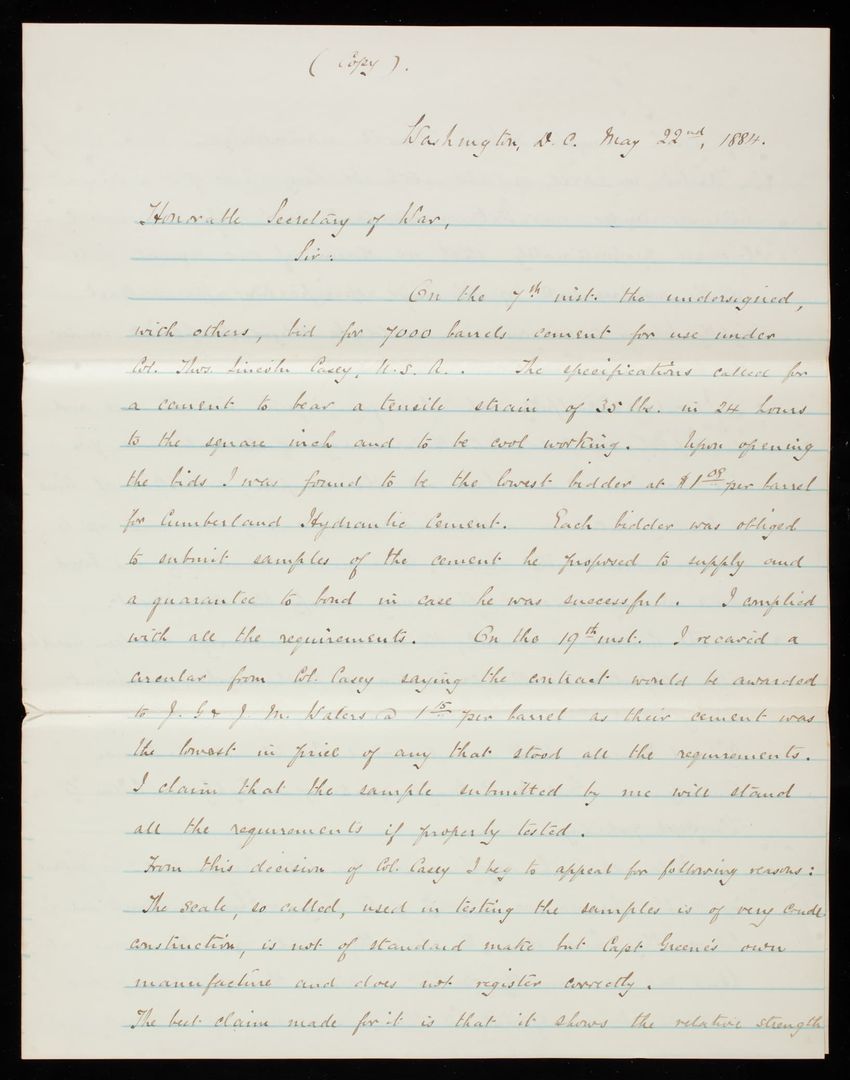 ( Copy ).
Washington, D. C. May 22nd, 1884.
Honorable Secretary of War,
Sir:
On the 7th inst. the undersigned,
with others, bid for 7000 barrels cement for use under
Col. Thos. Lincoln Casey, U. S. A. . The specifications called for
a cement to bear a tensile strain of 35 lbs. in 24 hours
to the square inch and to be cool working. Upon opening
the bids I was found to be the lowest bidder at $1 09 per barrel
for Cumberland Hydraulic Cement. Each bidder was obliged
to submit samples of the cement he proposed to supply and
a guarantee to bond in case he was successful. I complied
with all the requirements. On the 19th inst. I received a
circular from Col. Casey saying the contract would be awarded
to J. G & J. M. Waters @ 1 15 per barrel as their cement was
the lowest in price of any that stood all the requirements.
I claim that the sample submitted by me will stand
all the requirements if properly tested.
From this decision of Col. Casey I beg to appeal for following reasons:
The Scale, so called, used in testing the samples is of very crude
construction, is not of standard make but Capt. Greene's own
manufacture and does not register correctly.
The best claim made for it is that it shows the relative strength